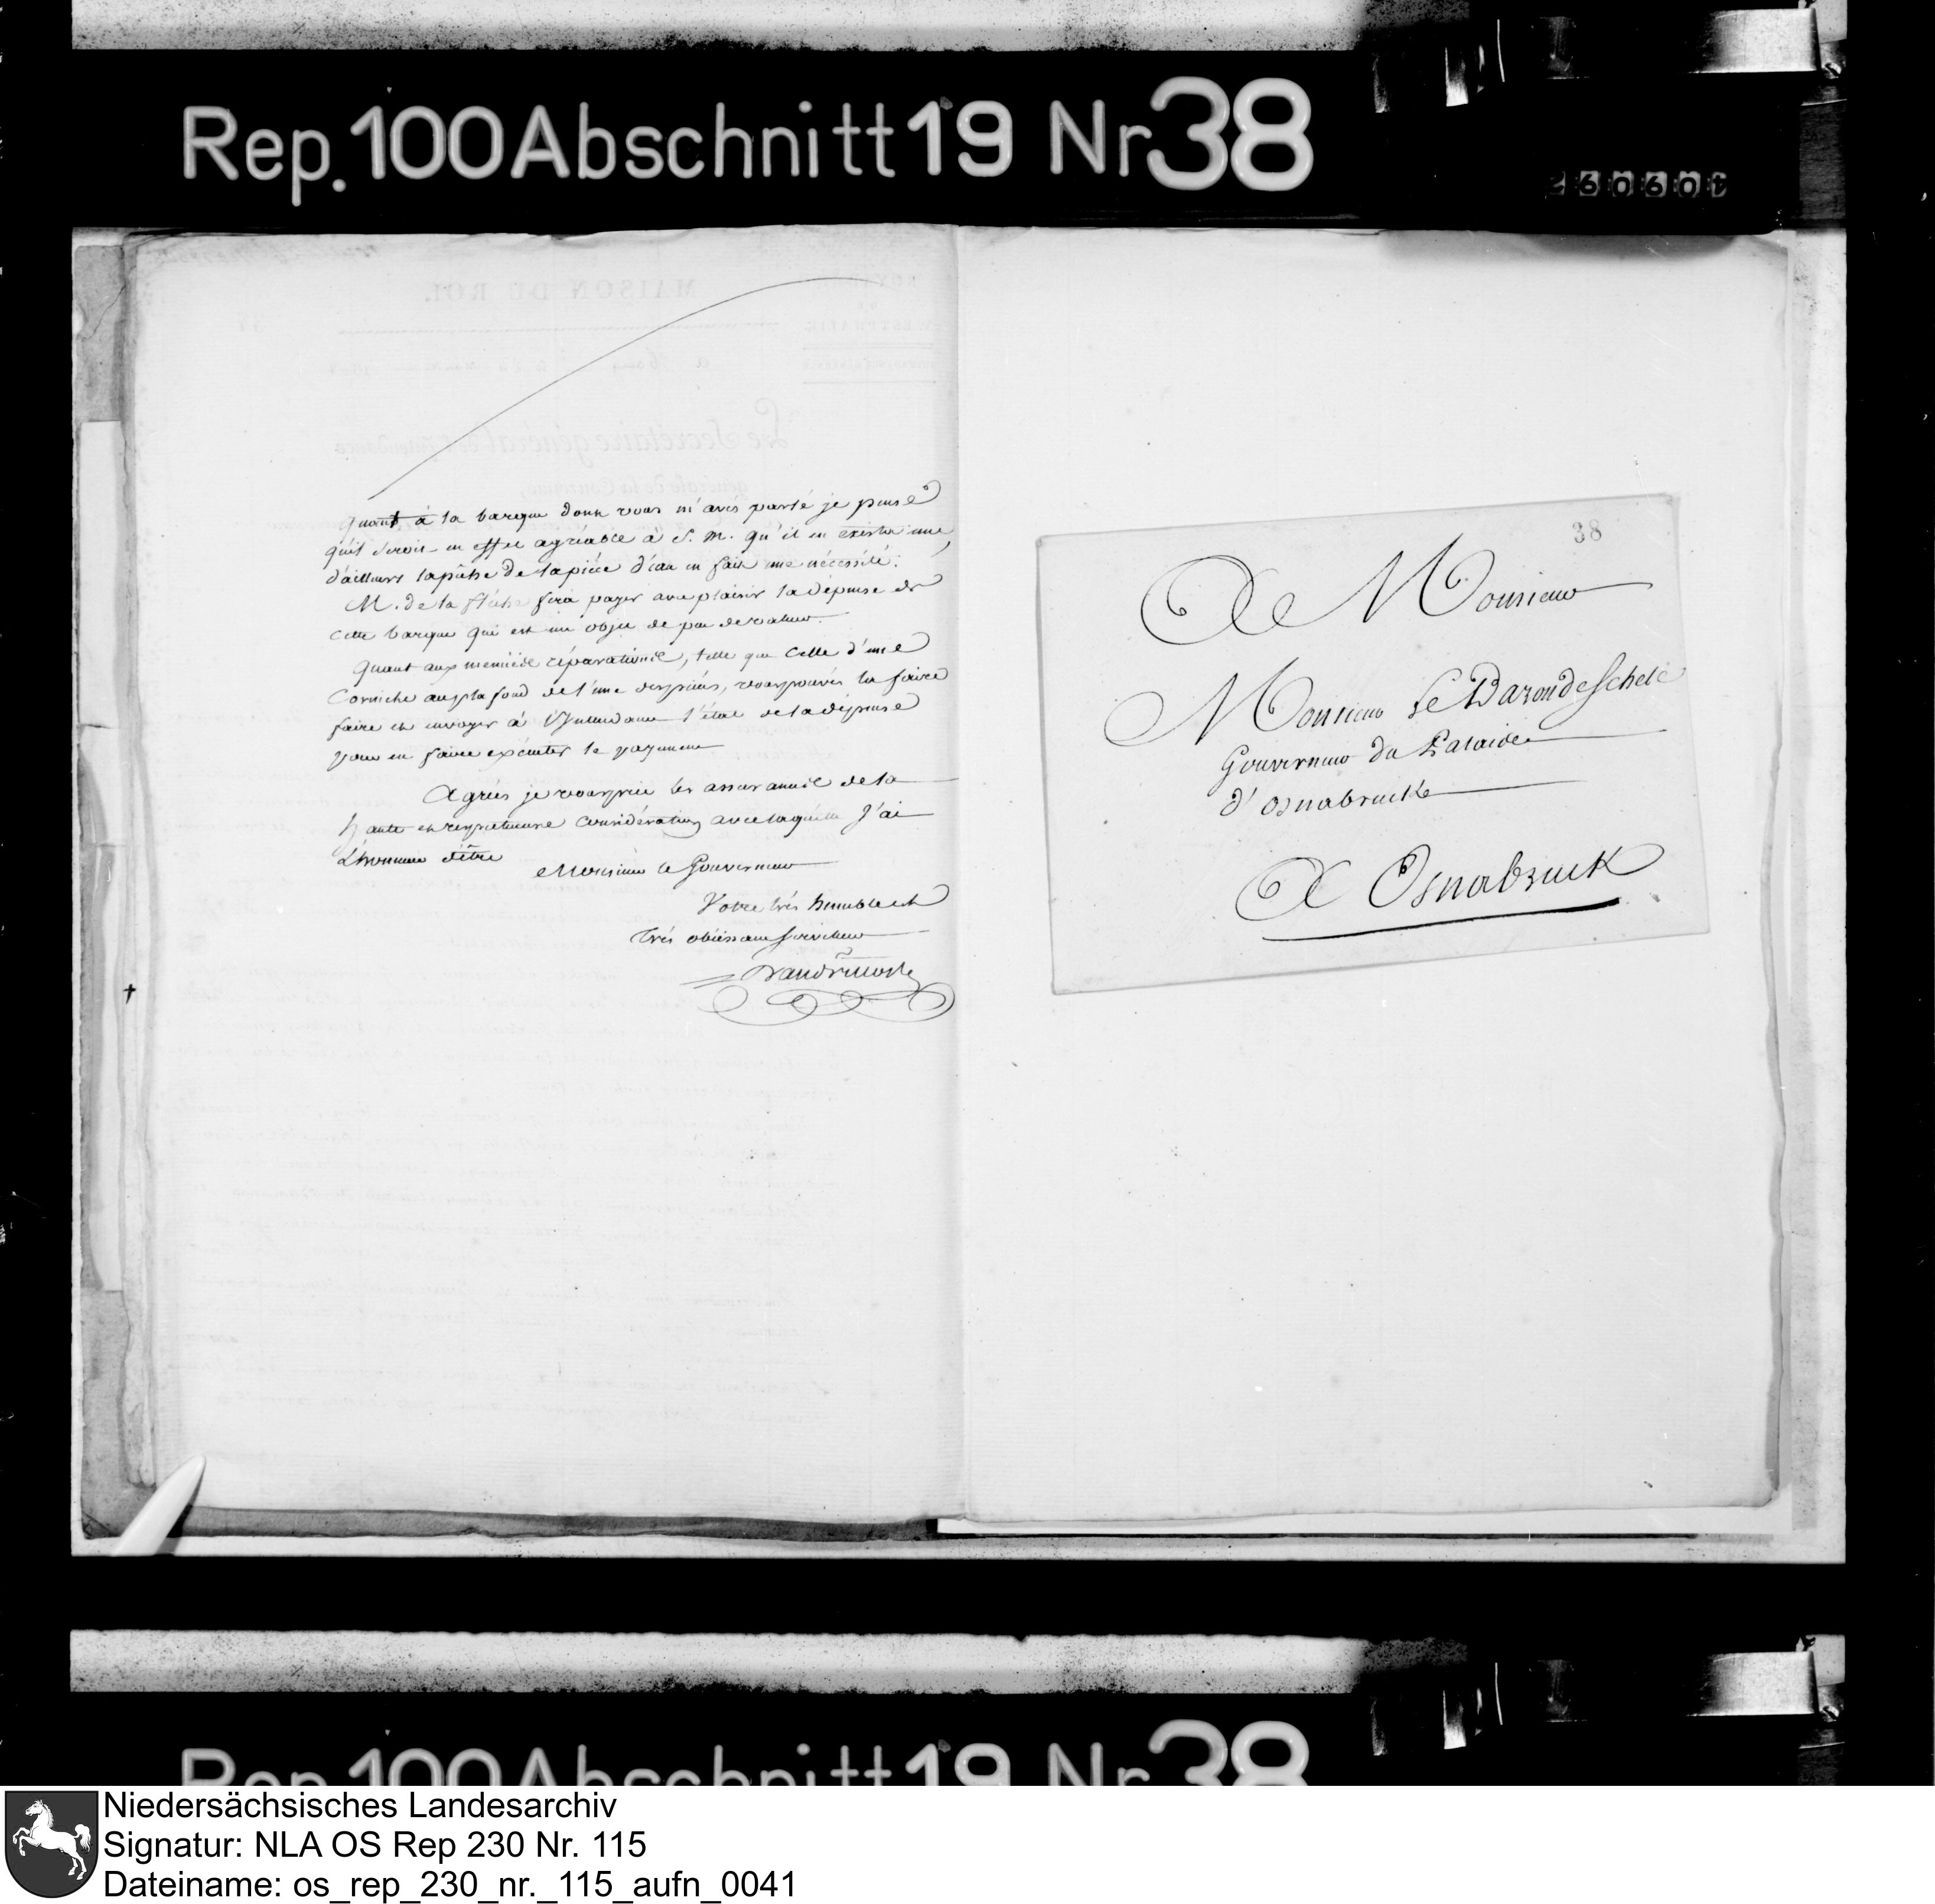 Rep. 100 Abschnitt 19 Nr 38
quant à la barque dont vous m'avés parlé je pense
qu'il seroit en effet agréable à S. M. qu'il en exista une,
d'ailleurs la pêche de la pièce d'eau en fait une nécessité.
M. de la flèche fera payer avec plaisir la dépense de
cette barque qui est un objet de peu de valeur.
Quant aux menües réparations, telle que celle d'une
corniche au plafond de l'une des pièces, vous pouvés la faire
faire et envoyer à l'Intendance l'état de la dépense
pour en faire exécuter le payement
Agrées je vous prie les assurances de la
haute et respectueuse considération avec laquelle J'ai
L'honneur d'être
Monsieur le Gouverneur
Votre très humble et
très obéissant serviteur
38
A Monsieur
Monsieur Le Baron de Schele
Gouverneur du Palais
d'Osnabruck
A Osnabruck
MAISON DU ROI.
Le Secrétaire général de l'Intendance
générale de la Couronne,
Rep. 100 Abschnitt 19 Nr 38
Niedersächsisches Landesarchiv
Signatur: NLA OS Rep 230 Nr. 115
Dateiname: os_rep_230_nr._115_aufn_0041